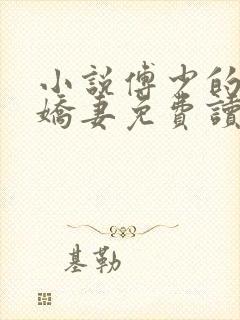 小說傅少的
嬌妻免費讀
基勒